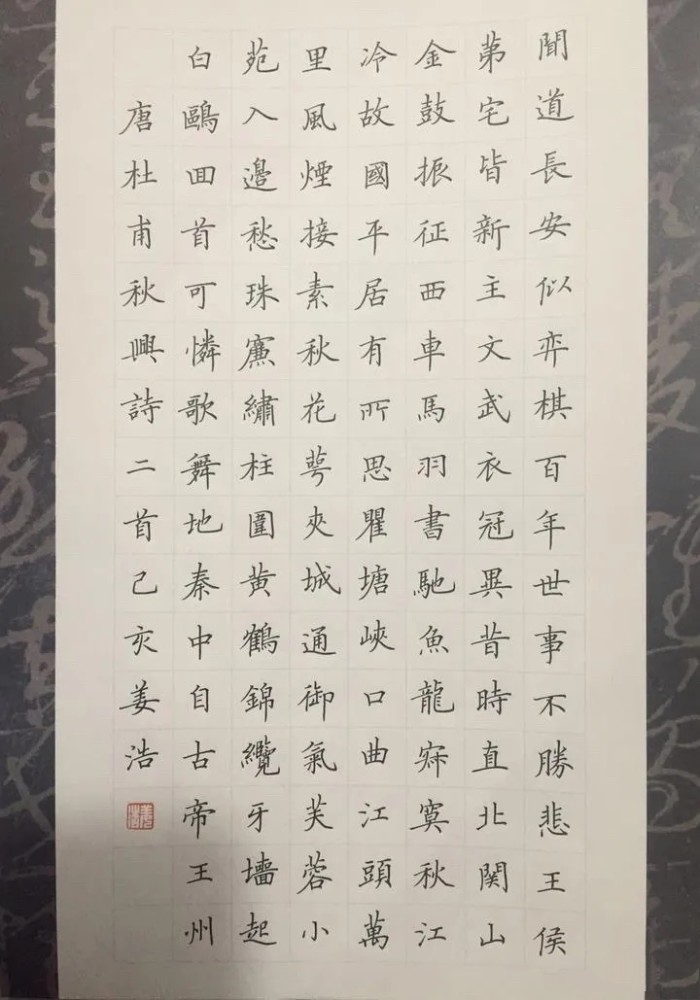 聞道長安似弈棋百年世事不勝悲王侯
苐宅皆新主文武衣冠異昔時直北関山
金鼓振征西車馬羽書馳魚龍寂寞秋江
冷故國平居有所思瞿塘峽口曲江頭萬
里風煙接素秋花萼夾城通御氣芙蓉小
苑入邊愁珠簾繡柱圍黄鶴錦纜牙墻起
白鷗回首可憐歌舞地秦中自古帝王州
唐杜甫秋興詩二首己亥姜浩
姜浩